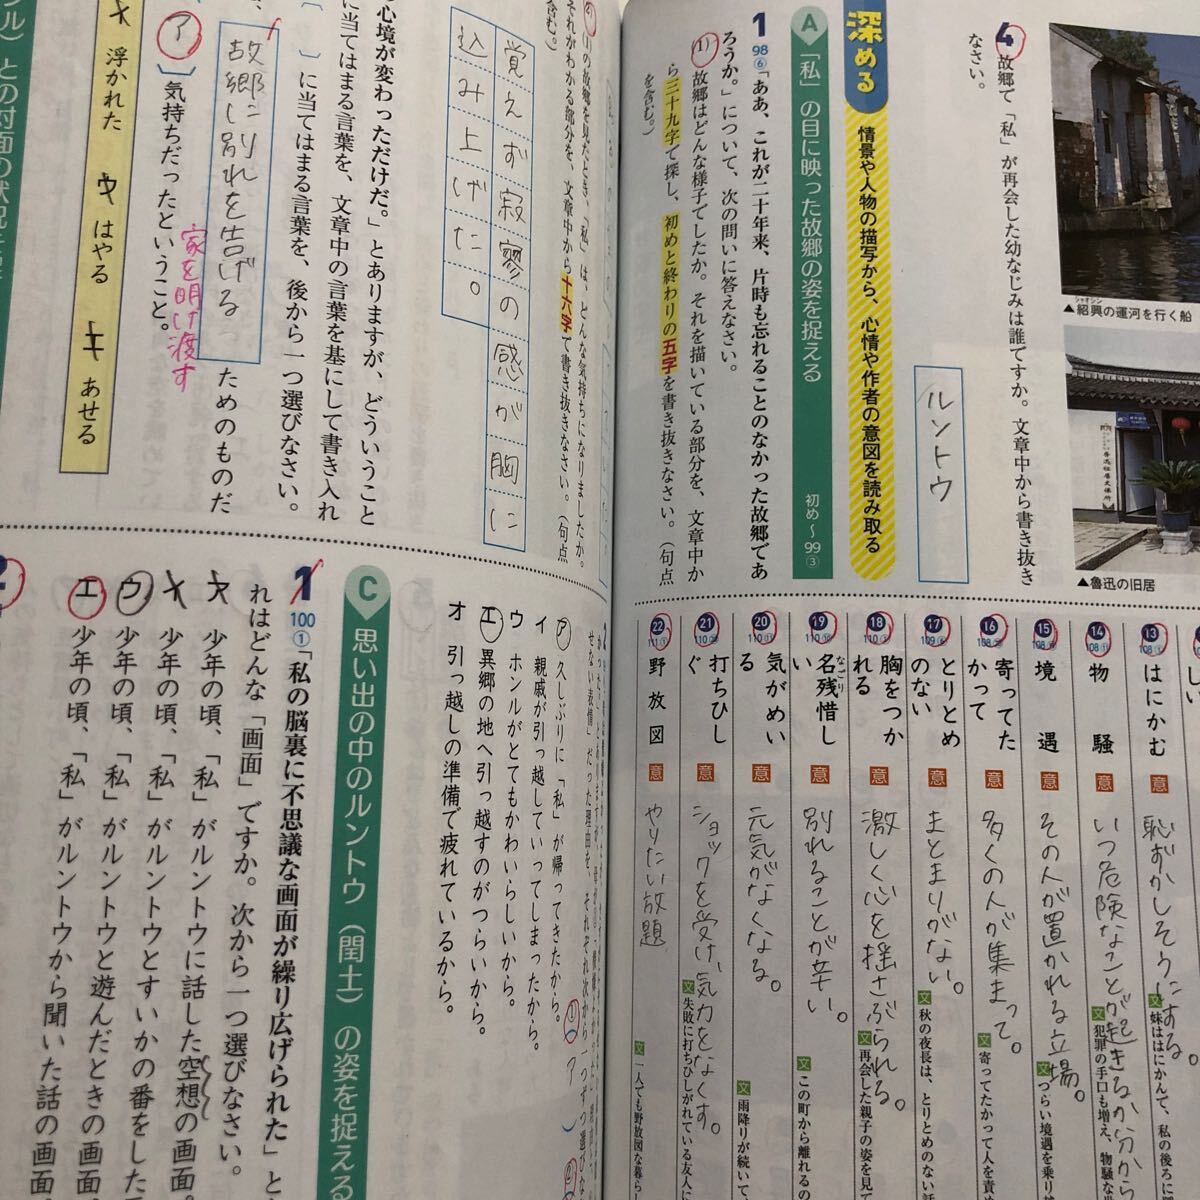 4 故郷で「私」が再会した幼なじみは誰ですか。文章中から書き抜き
なさい。
ルントウ
▲紹興の運河を行く船
シャオシン
▲魯迅の旧居
深める
情景や人物の描写から、心情や作者の意図を読み取る
A 「私」の目に映った故郷の姿を捉える
初め〜99③
1 98⑥「ああ、これが二十年来、片時も忘れることのなかった故郷であ
ろうか。」について、次の問いに答えなさい。
(1) 故郷はどんな様子でしたか。それを描いている部分を、文章中か
ら三十九字で探し、初めと終わりの五字を書き抜きなさい。(句点
を含む。)
(1)の故郷を見たとき、「私」は、どんな気持ちになりましたか。
それがわかる部分を、文章中から十六字で書き抜きなさい。(句点
を含む。)
覚えず寂寥の感が胸に
込み上げた。
心境が変わっただけだ。」とありますが、どういうこと
に当てはまる言葉を、文章中の言葉を基にして書き入れ
に当てはまる言葉を、後から一つ選びなさい。
故郷に別れを告げる
ためのものだ
家を明け渡す
ア
気持ちだったということ。
浮かれた
ウ はやる
エ あせる
との対面の状況を捉
13 はにかむ
意 恥ずかしそうにする。
文 妹ははにかんで、私の後ろに
14 物騒
意 いつ危険なことが起きるか分から
文 犯罪の手口も増え、物騒な
15 境遇
意 その人が置かれる立場。
文 つらい境遇を乗り
16 寄ってた
かって
意 多くの人が集まって。
文 寄ってたかって人を責め
17 とりとめ
のない
意 まとまりがない。
文 秋の夜長は、とりとめのない話
18 胸をつか
れる
意 激しく心を揺さぶられる。
文 再会した親子の姿を見て
19 名残惜し
い
なごり
意 別れることが辛い。
文 この町から離れるの
20 気がめい
る
意 元気がなくなる。
文 雨降りが続いて、
21 打ちひし
ぐ
意 ショックを受け、気力をなくす。
文 失敗に打ちひしがれている友人に
22 野放図
意 やりたい放題
文 一人でも野放図な暮らし
ア 久しぶりに「私」が帰ってきたから。
イ 親戚が引っ越していってしまったから。
ウ ホンルがとてもかわいらしいから。
エ 異郷の地へ引っ越すのがつらいから。
オ 引っ越しの準備で疲れているから。
C 思い出の中のルントウ(閏土)の姿を捉える
1 100①「私の脳裏に不思議な画面が繰り広げられた」と
れはどんな「画面」ですか。次から一つ選びなさい。
少年の頃、「私」がルントウに話した空想の画面。
少年の頃、「私」がルントウとすいかの番をした
ウ 少年の頃、「私」がルントウと遊んだときの画面
エ 少年の頃、「私」がルントウから聞いた話の画面